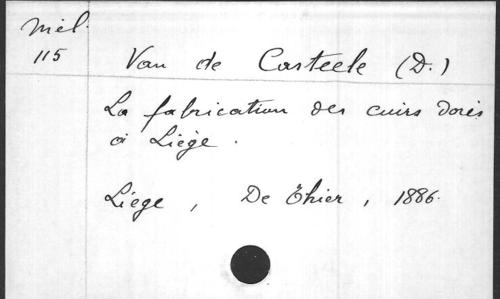 Mél.
115
Van de Casteele (D.)
La fabrication des cuirs dorés
à Liège.
Liège, De Thier, 1886.